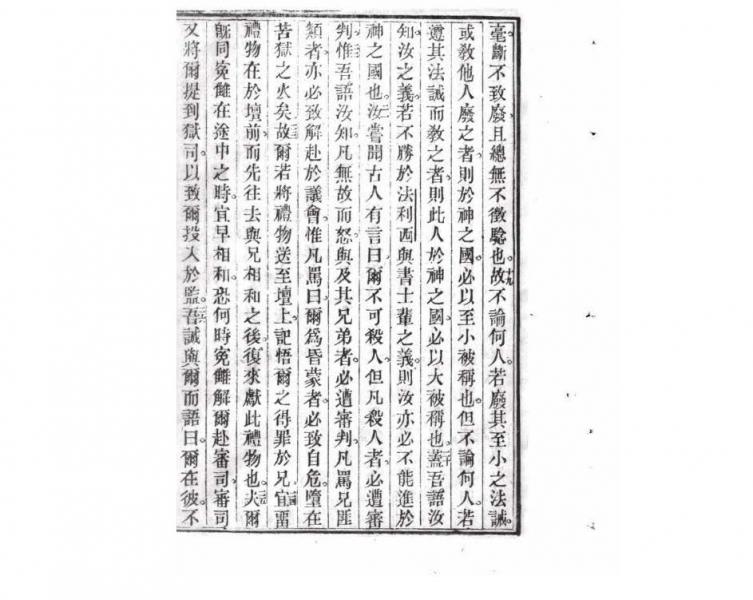 毫斷不致廢且總無不徵驗也。十九故不論何人。若廢其至小之法誡。
或教他人廢之者。則於神之國。必以至小被稱也。但不論何人。若
遵其法誡而教之者。則此人於神之國。必以大被稱也。二十蓋吾語汝
知。汝之義。若不勝於法利西與書士輩之義。則汝亦必不能進於
神之國也。二一汝嘗聞古人有言曰。爾不可殺人。但凡殺人者。必遭審
判。惟吾語汝知。凡無故而怒與及其兄弟者。必遭審判。凡罵兄匪
類者。亦必致解赴於議會。惟凡罵曰。爾為昏蒙者。必致自危墮在
苦獄之火矣。二三故爾若將禮物送至壇上。記悟爾之得罪於兄。二四宜留
禮物在於壇前。而先往去與兄相和之後。復來獻此禮物也。二五夫爾
既同冤讎在途中之時。宜早相和。恐何時冤讎解爾赴審司。審司
又將爾提到獄司。以致爾投入於監。二六吾誡與爾而語曰。爾在彼。不